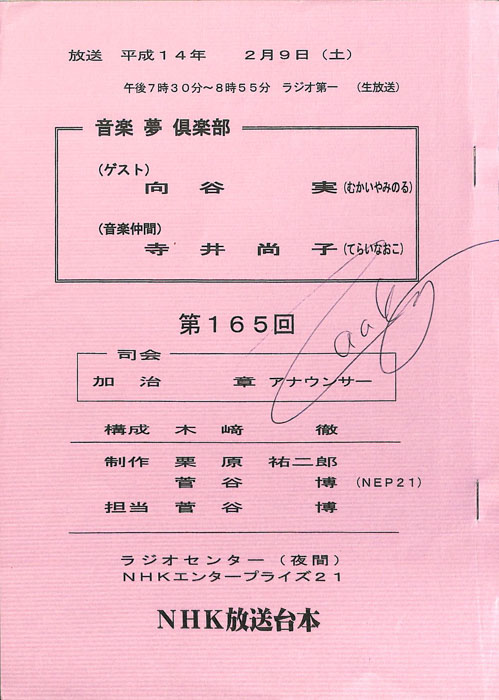 放送 平成14年 2月9日（土）
午後7時30分～8時55分 ラジオ第一 （生放送）
音楽 夢 倶楽部
（ゲスト）
向谷 実（むかいやみのる）
（音楽仲間）
寺井尚子（てらいなおこ）
第165回
司会
加治 章 アナウンサー
構成 木﨑 徹
制作 栗原 祐二郎
菅谷 博 （NEP21）
担当 菅谷 博
ラジオセンター（夜間）
NHKエンタープライズ21
NHK放送台本